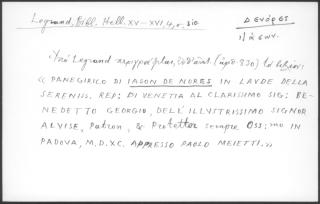 Legrand, Bibl. Hell. XV–XVI, 4, σ. 310
ΔΕΝΟΡΕΣ
Legrand περιγράφεται
« PANEGIRICO DI IASON DE NORES IN LAVDE DELLA
SERENISS. REP: DI VENETIA AL CLARISSIMO SIG: BE-
NEDETTO GEORGIO, DELL'ILLVSTRISSIMO SIGNOR
ALVISE, Patron, & Protettor sempre Oss: mo IN
PADOVA, M.D.XC. APPRESSO PAOLO MEIETTI.»